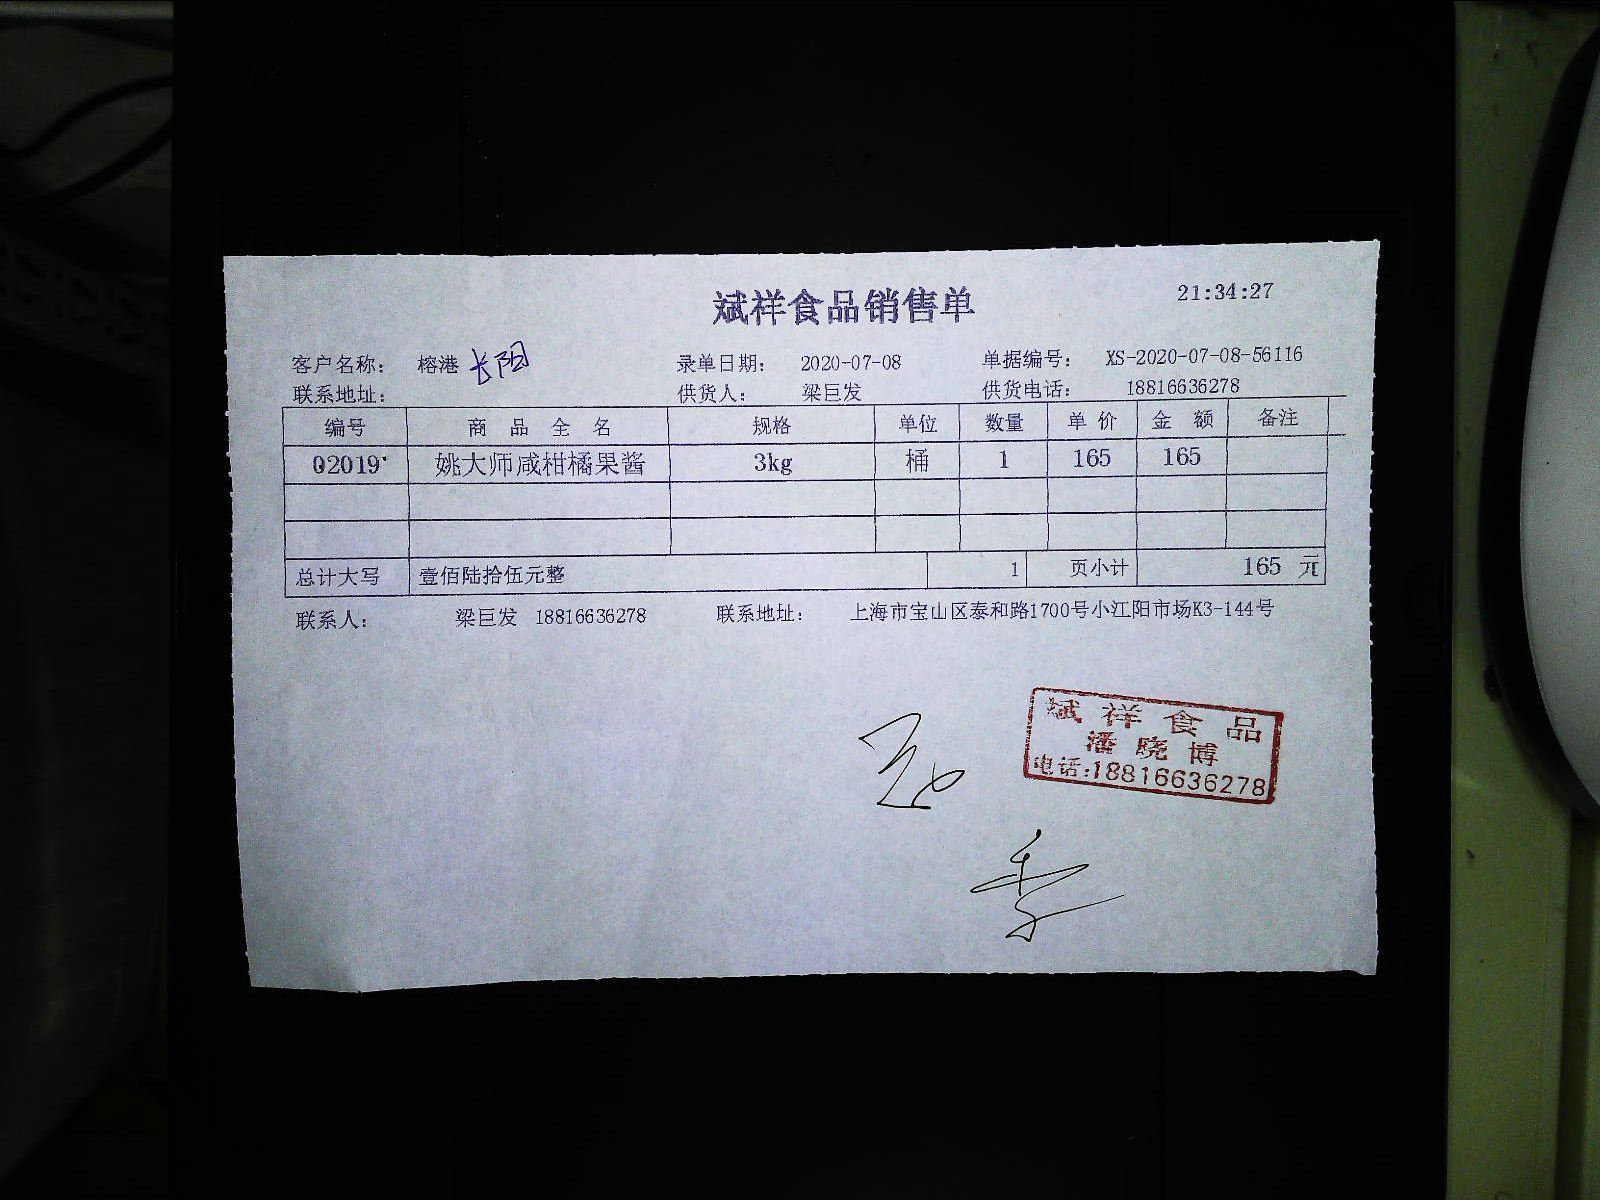 斌祥食品销售单 21:34:27
客户名称: 榕港 长阳 录单日期: 2020-07-08 单据编号: XS-2020-07-08-56116
联系地址: 供货人: 梁巨发 供货电话: 18816636278
编号 商品全名 规格 单位 数量 单价 金额 备注
02019 姚大师咸柑橘果酱 3kg 桶 1 165 165
总计大写 壹佰陆拾伍元整 1 页小计 165 元
联系人: 梁巨发 18816636278 联系地址: 上海市宝山区泰和路1700号小江阳市场K3-144号
斌祥食品
潘晓博
电话:18816636278